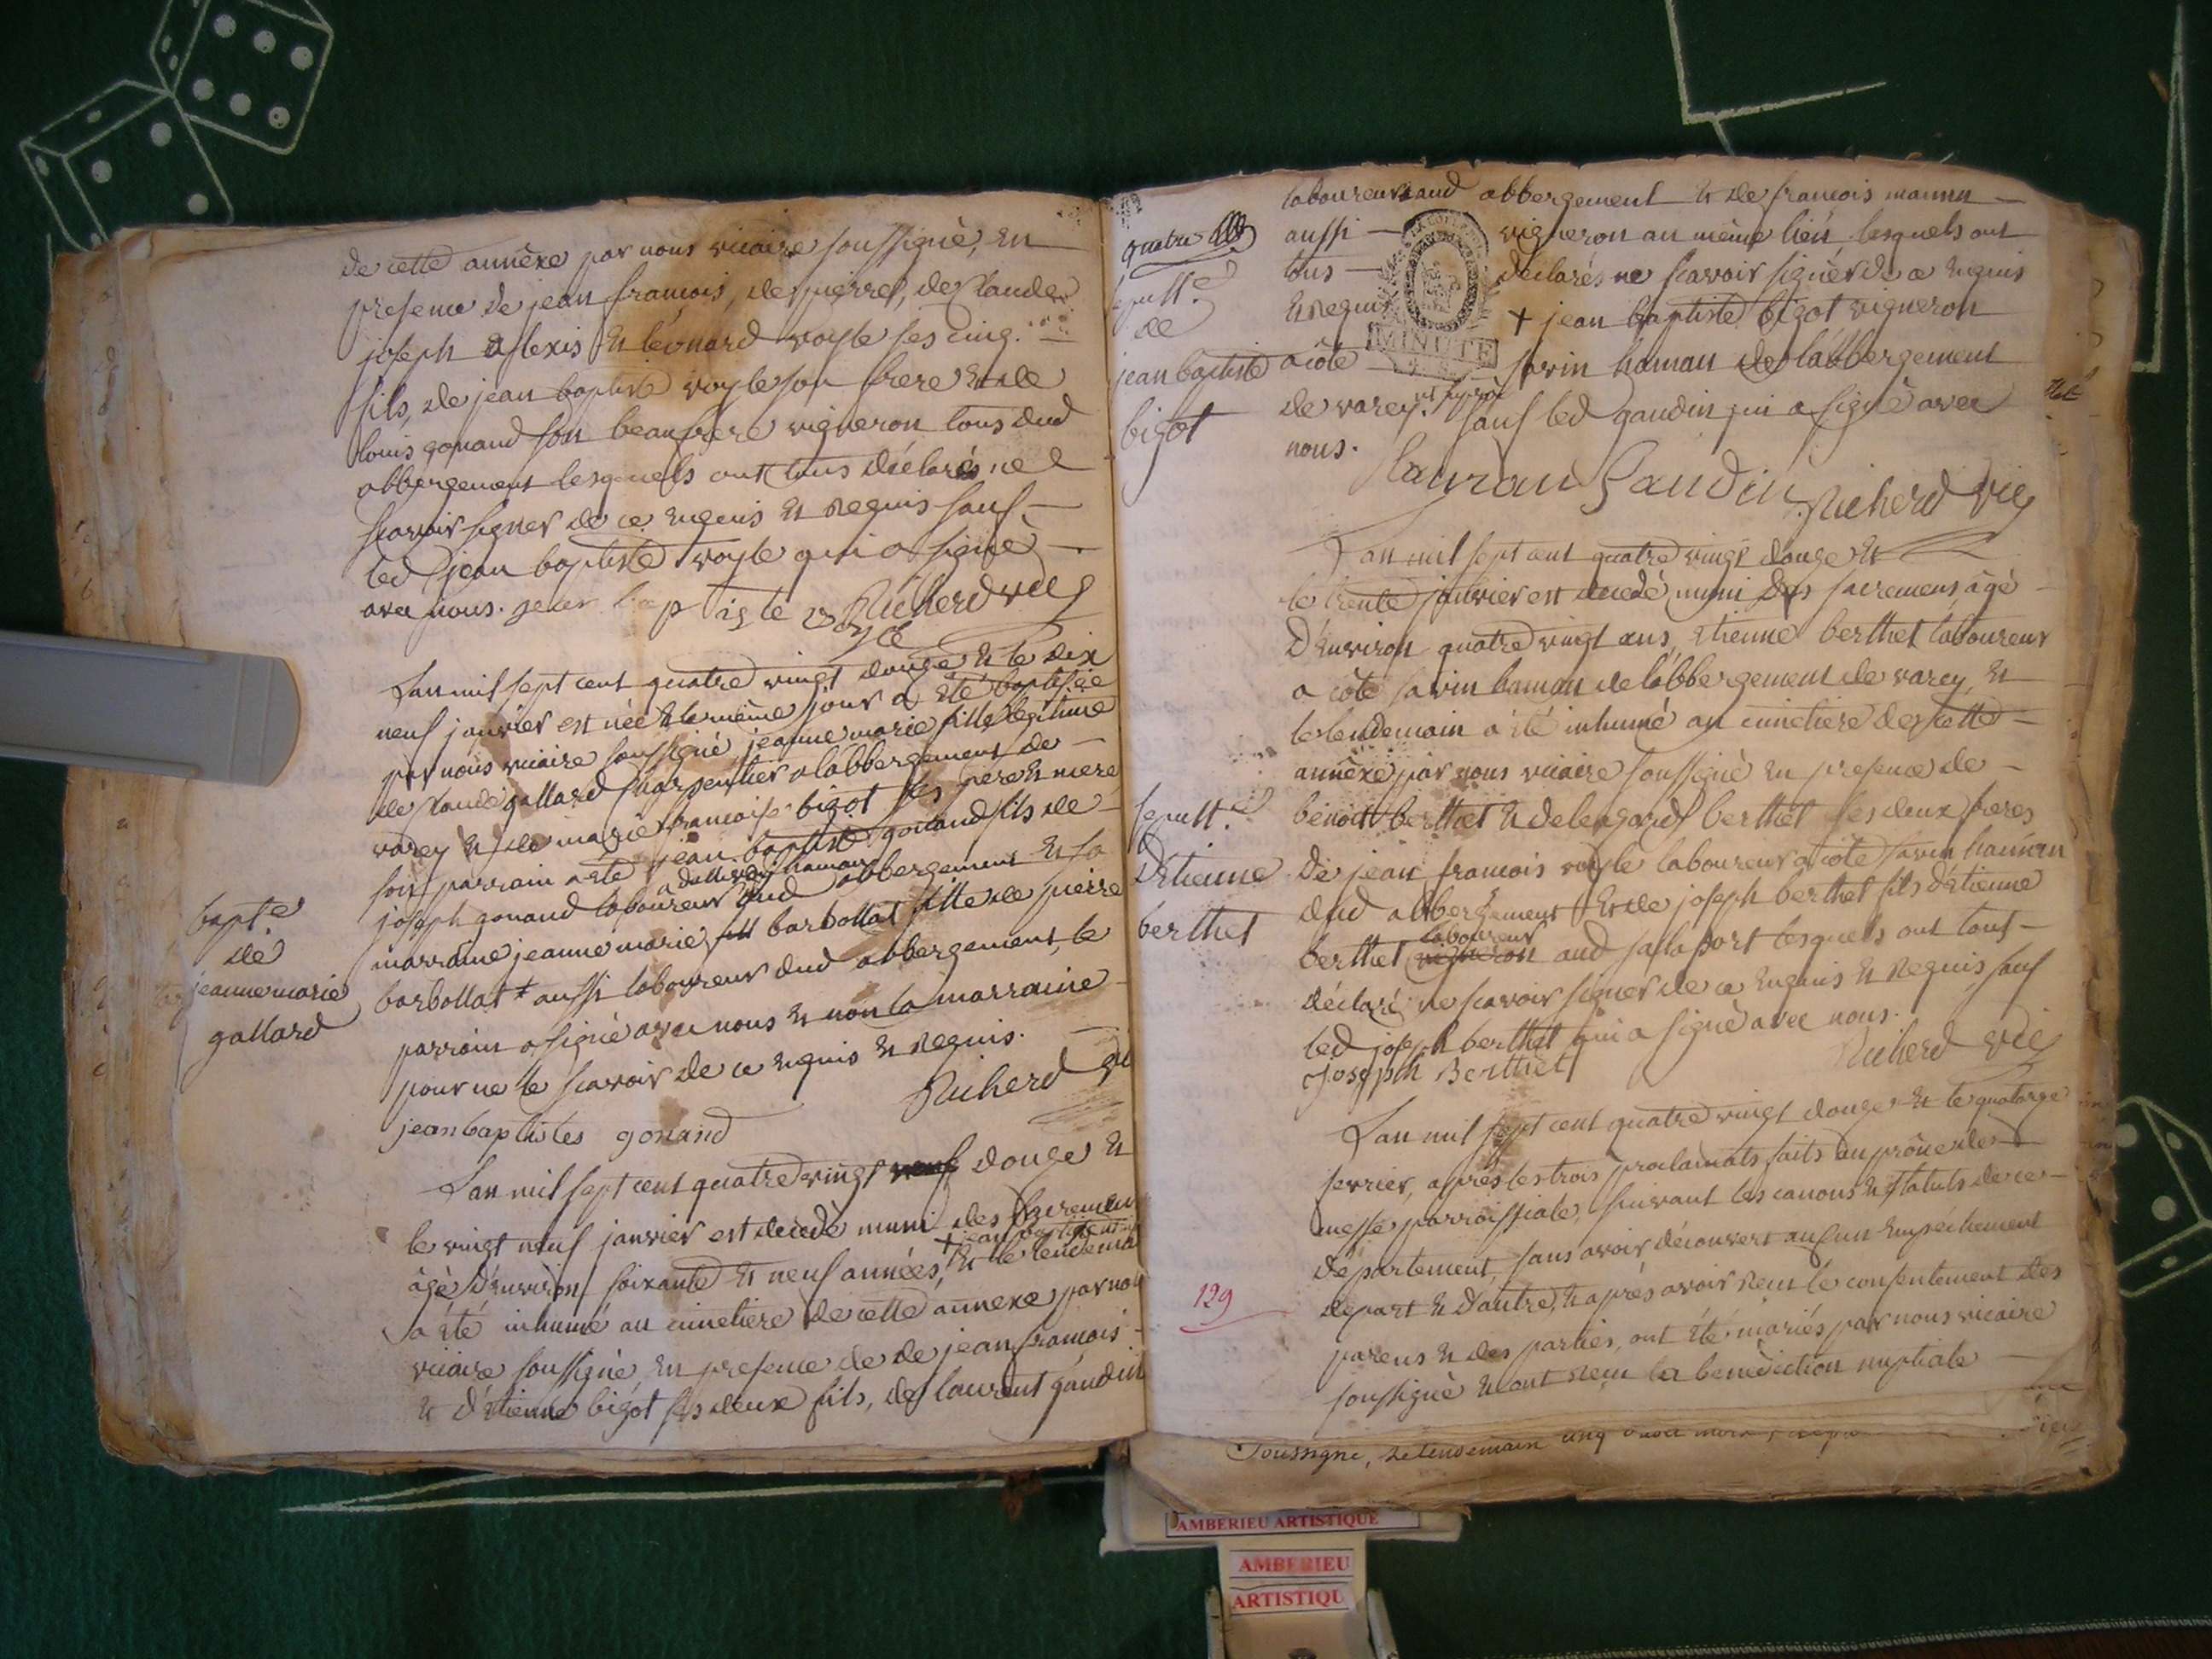 de cette annèxe par nous vicaire soussigné, en
presence de jean françois, de pierre, de claude
joseph alexis et léonard voyle ses cinq
fils, de jean baptiste voyle son frere et de
louis gonand son beaufrere vigneron tous dud
abbergement lesquels ont tous déclarés ne
scavoir signer de ce enquis et requis sauf
led jean baptiste voyle qui a signé
avec nous. jean baptiste voyle Richerd vic
Lan mil sept cent quatre vingt douze et le dix
neuf janvier est née et le même jour a été baptisée
par nous vicaire soussigné jeanne marie fille légitime
de claude gallard charpentier a labbergement de
varey et de marie françoise bigot ses pere et mere
son parrain a été jean baptiste gonand fils de
joseph gonand laboureur dud abbergement et sa
marraine jeanne marie barbollat fille de pierre
barbollat aussi laboureur dud abbergement, le
parrain a signé avec nous et non la marraine
pour ne le scavoir de ce enquis et requis.
Richerd
jean baptistes gonand
bapt.e
de
jeanne marie
gallard
Lan mil sept cent quatre vingt neuf douze et
le vingt neuf janvier est decedé muni des sacremens
âgé d'environ soixante et neuf années, + jean baptiste et le lendemain
a été inhumé au cimetiere de cette annexe par nous
vicaire soussigné en presence de de jean françois
et d'étienne bigot ses deux fils, de laurent gaudin
quatre
sepult.e
de
jean baptiste
bigot
laboureur aud abbergement et de françois
aussi vigneron au même lieu lesquels ont
tous déclarés ne scavoir signer de ce enquis
et requis + jean baptiste bigot vigneron
MINUTE
a côte savin haman de labbergement
de varey. sauf led gaudin qui a signé avec
nous.
Lauran Gaudin Richerd vic
Lan mil sept cent quatre vingt douze et
le trente janvier est decedé muni des sacremens âgé
d'environ quatre vingt ans, etienne berthet laboureur
a côte savin haman de labbergement de varey, et
le lendemain a été inhumé au cimetiere de cette
annèxe par nous vicaire soussigné en presence de
benoit berthet et de leonard berthet ses deux freres
de jean françois voyle laboureur a côte savin haman
dud abbergement et de joseph berthet fils d'etienne
berthet vigneron laboureur aud lesquels ont tous
déclaré ne scavoir signer de ce enquis et requis sauf
led joseph berthet qui a signé avec nous.
Joseph Berthet Richerd vic
sepult.e
D'etienne
berthet
Lan mil sept cent quatre vingt douze et le quatorze
fevrier, après les trois proclamats faits au prône de
messe parroissiale, suivant les canons et statuts de ce
département, sans avoir découvert aucun empéchement
de part et d'autre, et après avoir reçu le consentement des
parens et des parties, ont été mariés par nous vicaire
soussigné et ont reçu la benediction nuptiale
129
soussigné, le lendemain cinq
AMBERIEU ARTISTIQUE
AMBERIEU
ARTISTIQU